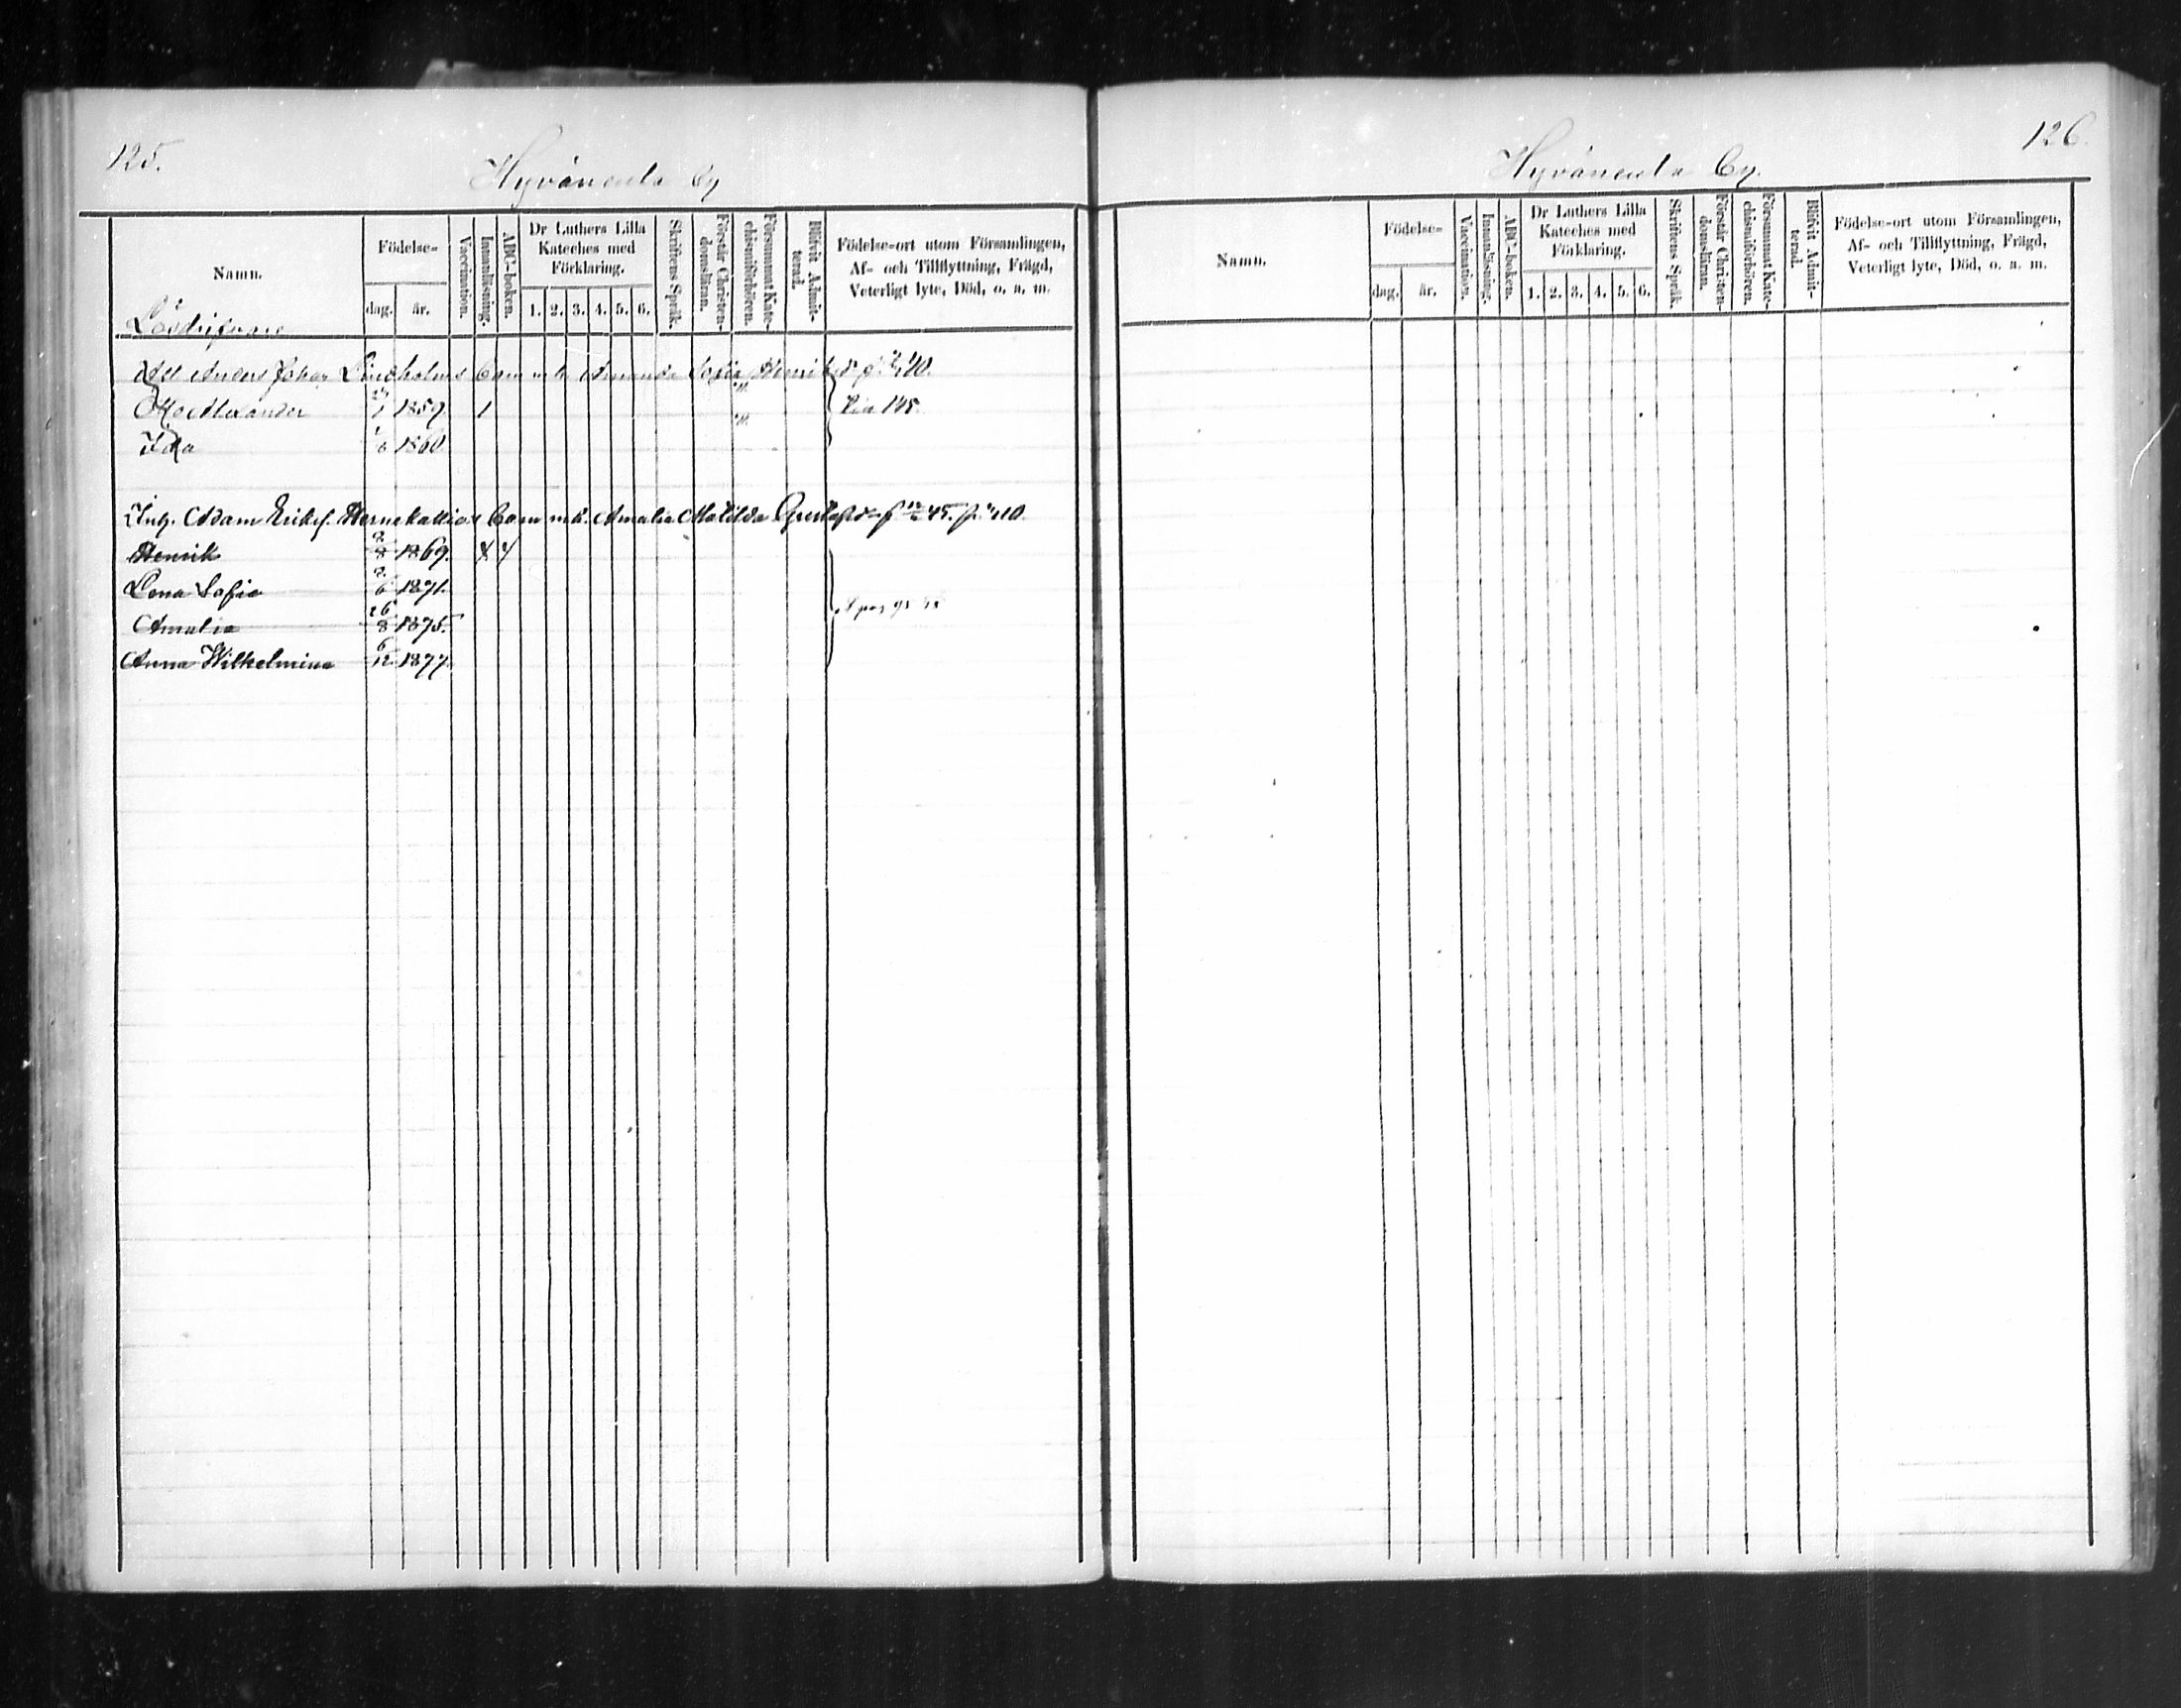 125.
Hyväneula by
Namn.
Födelse-
dag. år.
Vaccination.
Innanläsning.
ABC-boken.
Dr Luthers Lilla
Kateches med
Förklaring.
1. 2. 3. 4. 5. 6.
Skriftens Språk.
Förstår Christen-
domsläran.
Försummat Kate-
chismiförhören.
Blifvit Admit-
terad.
Födelse-ort utom Församlingen,
Af- och Tillflyttning, Frägd,
Veterligt lyte, Död, o. a. m.
Lösdrifvare
Anders Johan Lindholms barn m. h. Amanda Sofia Henriksd.
Alexander 1859. 1
145.
Ida 1/6 1860
Inh. Adam Eriks. barn m. h. Amalia Matilda 45. p. 410.
Henrik 2/8 1869.
Lena Sofia 2/6 1871.
Amalia 26/8 1875.
Anna Wilhelmina 6/12 1877.
126.
Hyväneula by.
Namn.
Födelse-
dag. år.
Vaccination.
Innanläsning.
ABC-boken.
Dr Luthers Lilla
Kateches med
Förklaring.
1. 2. 3. 4. 5. 6.
Skriftens Språk.
Förstår Christen-
domsläran.
Försummat Kate-
chismiförhören.
Blifvit Admit-
terad.
Födelse-ort utom Församlingen,
Af- och Tillflyttning, Frägd,
Veterligt lyte, Död, o. a. m.